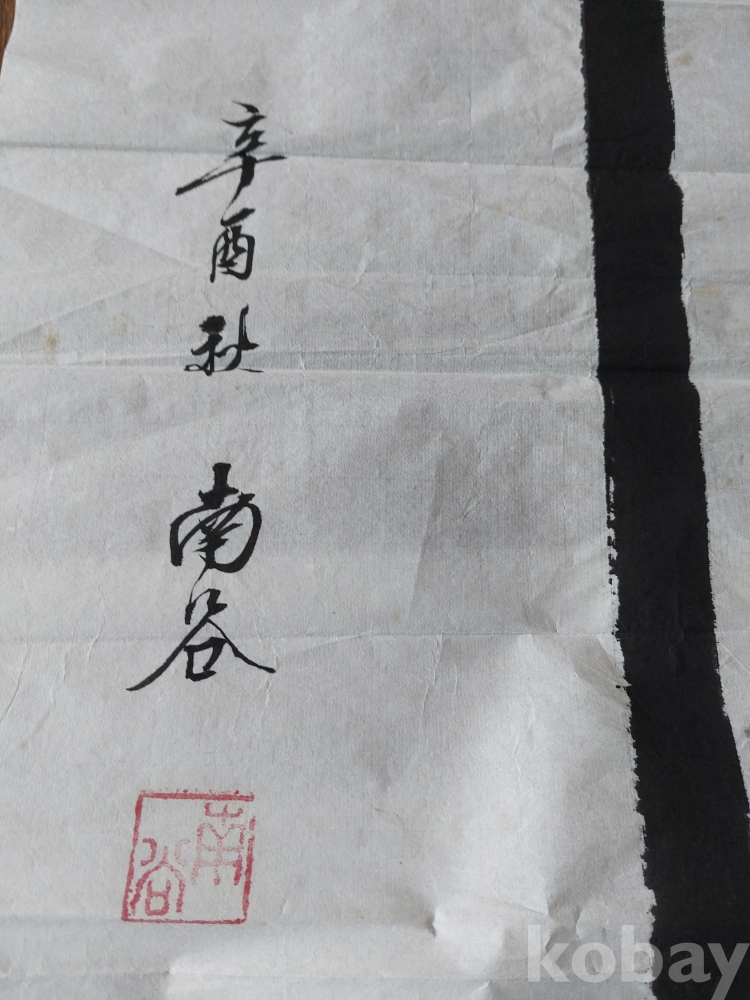 辛酉秋 南谷
南谷
kobay